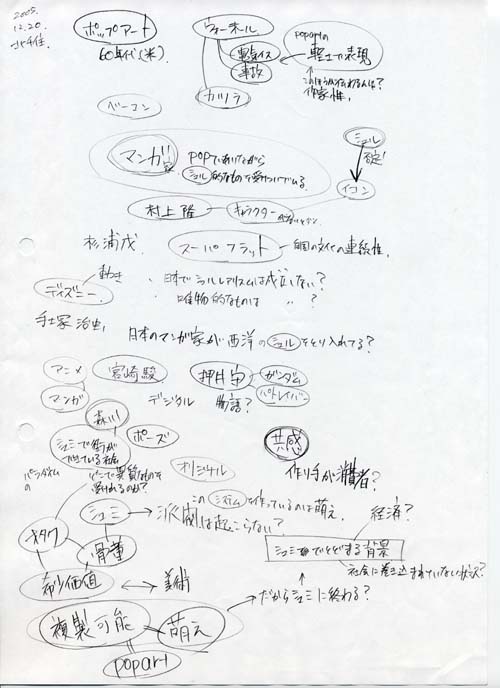 2005.
12.20.
ポップアート
60年代(米)
ウォーホル
電気イス
事故
カツラ
popartの
軽さで表現
作家性,
ベーコン
マンガ家
popでありながら
シュル的なものを受けついでる.
シュル
否定!
イコン
村上隆
キャラクター
杉浦茂
スーパーフラット
自国の文化の連続性,
動き
ディズニー
・日本でシュルレアリスムは成立しない?
・唯物的なものは 〃 ?
手塚治虫,
日本のマンガ家が西洋のシュルをとり入れてる?
アニメ
宮崎駿
押井守
ガンダム
パトレイバー
マンガ
デジタル
物語?
森川
シュミで街が
できている社会
ポーズ
オリジナル
共感
作り手が消費者?
このシステムを作っているのは萌え.
経済?
オタク
シュミ
派閥は起こらない?
骨董
背景
社会に巻き込まれていない状況?
希少価値
美術
だからシュミに終わる?
複製可能
萌え
popart